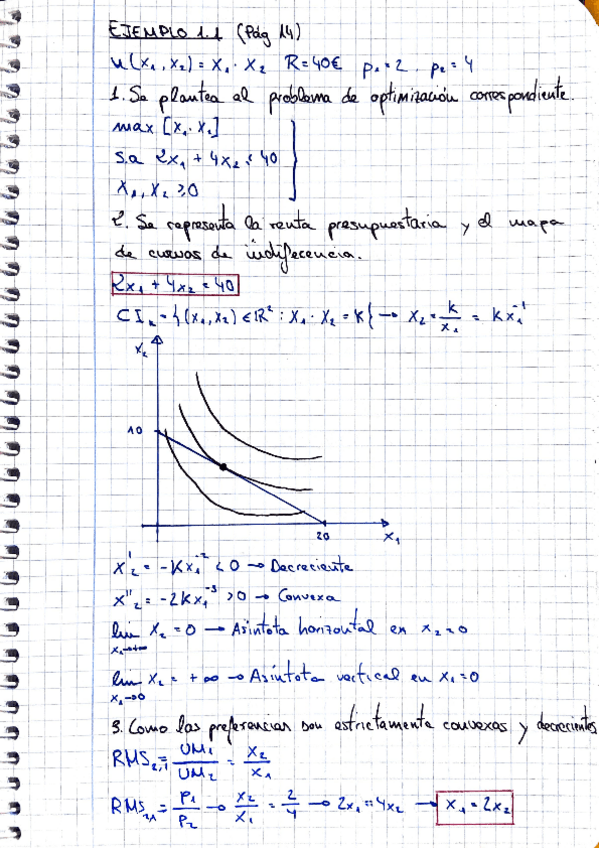 EJEMPLO 1.1 (Pág 14)
u(x₁, x₂) = x₁ · x₂ R = 40€ p₁ = 2, p₂ = 4
1. Se plantea al problema de optimización correspondiente.
max [x₁ · x₂]
s.a 2x₁ + 4x₂ ≤ 40
x₁, x₂ ≥ 0
2. Se representa la renta presupuestaria y el mapa
de curvas de indiferencia.
2x₁ + 4x₂ = 40
CIₖ = {(x₁, x₂) ∈ ℝ² : x₁ · x₂ = K} → x₂ = k/x₁ = Kx₁⁻¹
x₂
10
20
x₁
x₂' = -Kx₁⁻² < 0 → Decreciente
x₂'' = -2Kx₁⁻³ > 0 → Convexa
lim x₂ = 0 → Asíntota horizontal en x₂ = 0
x₁→+∞
lim x₂ = +∞ → Asíntota vertical en x₁ = 0
x₁→0
3. Como las preferencias son estrictamente convexas y decrecientes
RMS₂,₁ = UM₁/UM₂ = x₂/x₁
RMS₂,₁ = p₁/p₂ → x₂/x₁ = 2/4 → 2x₁ = 4x₂ → x₁ = 2x₂